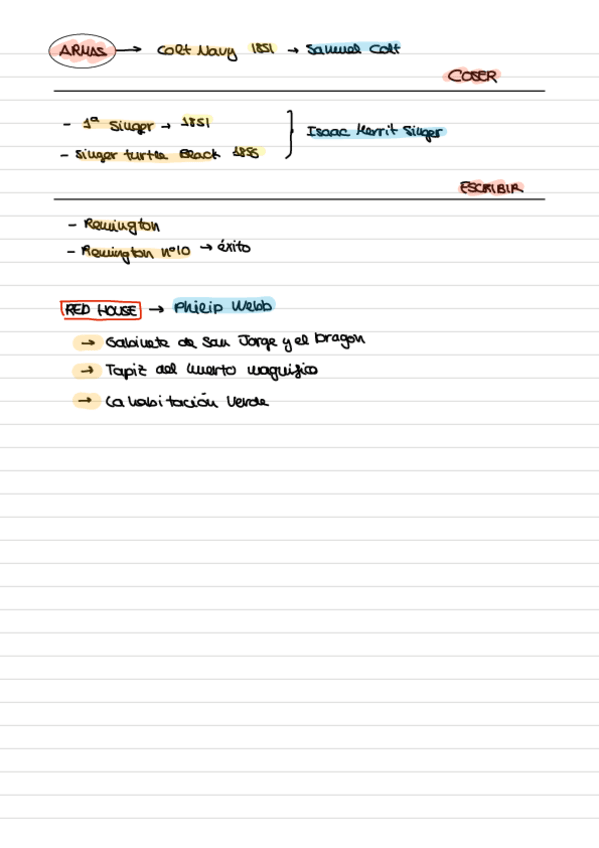 ARMAS → Colt Navy 1851 → Samuel Colt
COSER
- 1ª Singer → 1851
- Singer turtle Back 1856
Isaac Merrit Singer
ESCRIBIR
- Remington
- Remington nº10 → éxito
RED HOUSE → Philip Webb
→ Gabinete de San Jorge y el Dragon
→ Tapiz del huerto magnifico
→ La habitación verde